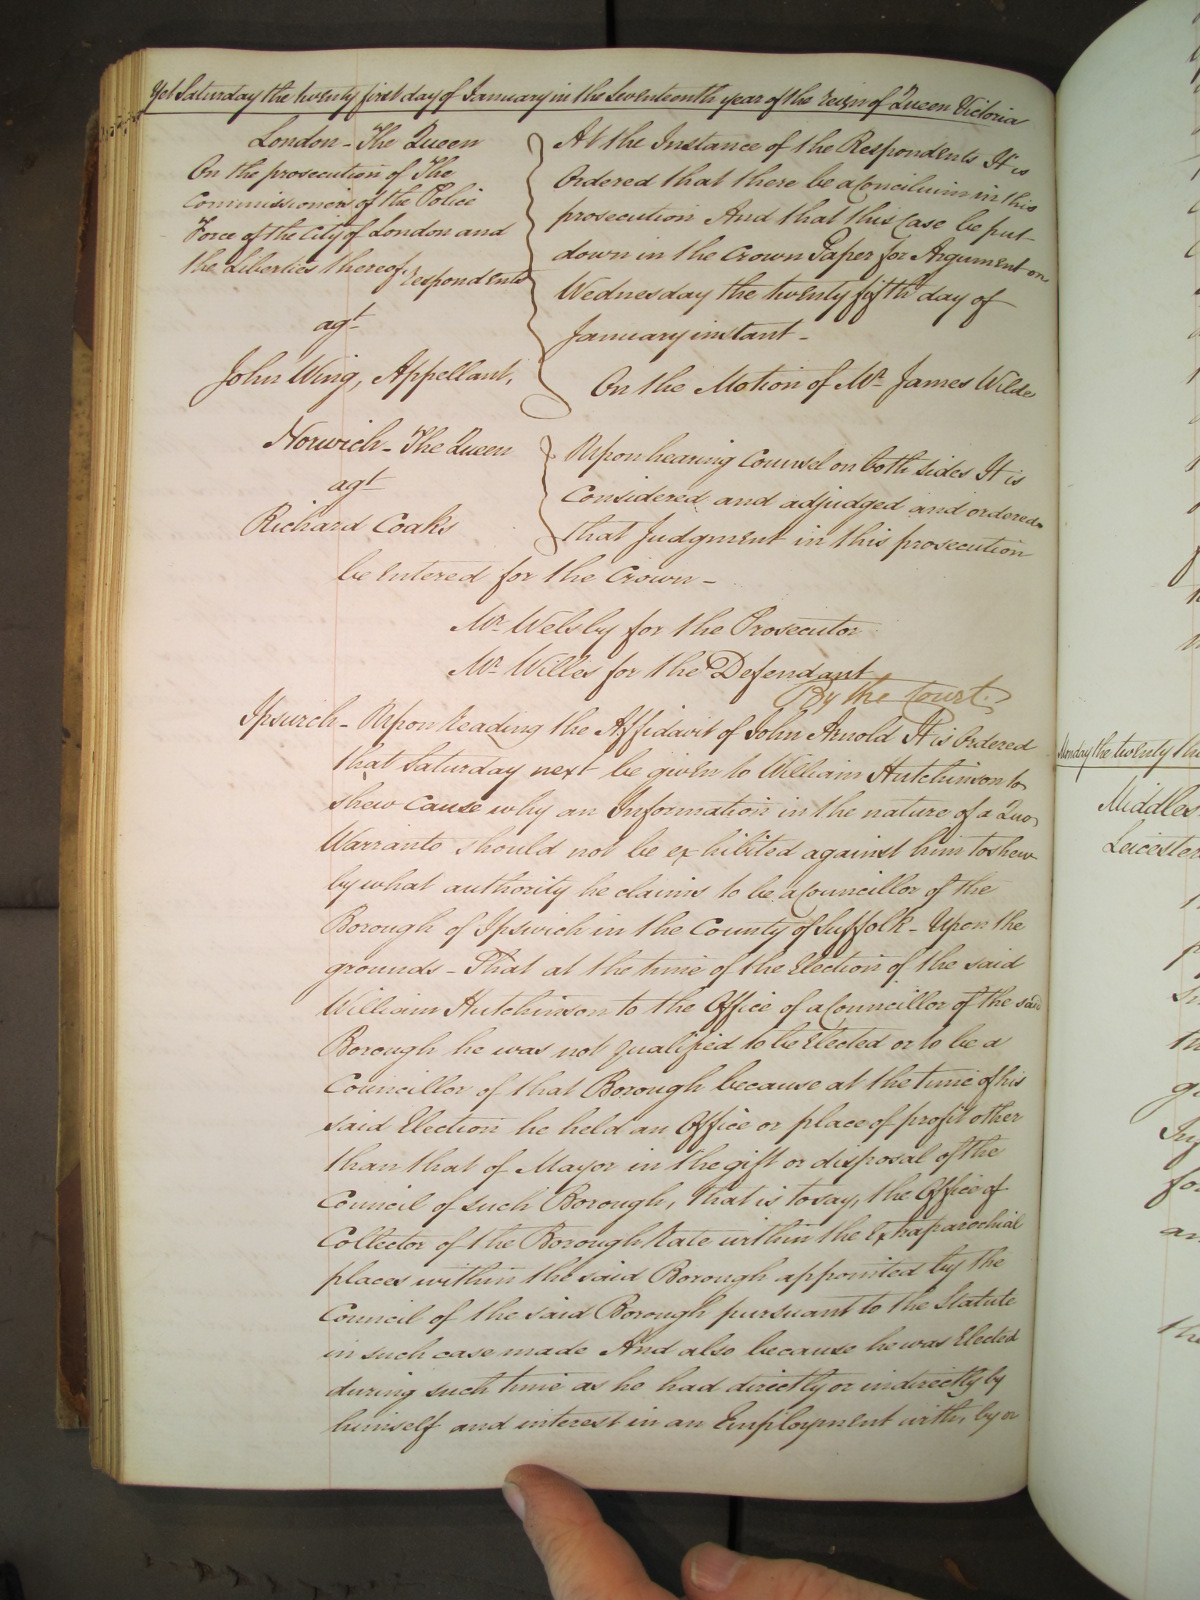 Yet Saturday the twenty first day of January in the Seventeenth year of the reign of Queen Victoria
London - The Queen
On the prosecution of The
Commissioners of the Police
Force of the City of London and
the Liberties thereof, Respondents
agt
John Wing, Appellant,
At the Instance of the Respondents It is
Ordered that there be a Concilium in this
prosecution And that this Case be put
down in the Crown Paper for Argument on
Wednesday the twenty fifth day of
January instant -
On the Motion of Mr. James Wilde
Norwich - The Queen
agt
Richard Coaks
Upon hearing Counsel on both sides It is
Considered and adjudged and ordered
that Judgment in this prosecution
be entered for the Crown -
Mr. Welsby for the Prosecutor
Mr. Willes for the Defendant
By the Court
Ipswich - Upon Reading the Affidavit of John Arnold It is Ordered
that Saturday next be given to William Hutchinson to
shew Cause why an Information in the nature of a Quo
Warranto should not be exhibited against him to shew
by what authority he claims to be a Councillor of the
Borough of Ipswich in the County of Suffolk - Upon the
grounds - That at the time of the Election of the said
William Hutchinson to the Office of a Councillor of the said
Borough he was not qualified to be Elected or to be a
Councillor of that Borough because at the time of his
said Election he held an Office or place of profit other
than that of Mayor in the gift or disposal of the
Council of such Borough, that is to say, the Office of
Collector of the Borough Rate within the Extraparochial
places within the said Borough appointed by the
Council of the said Borough pursuant to the Statute
in such case made And also because he was Elected
during such time as he had directly or indirectly by
himself and interest in an Employment with, by or
Monday the twenty
Middles
Leicester